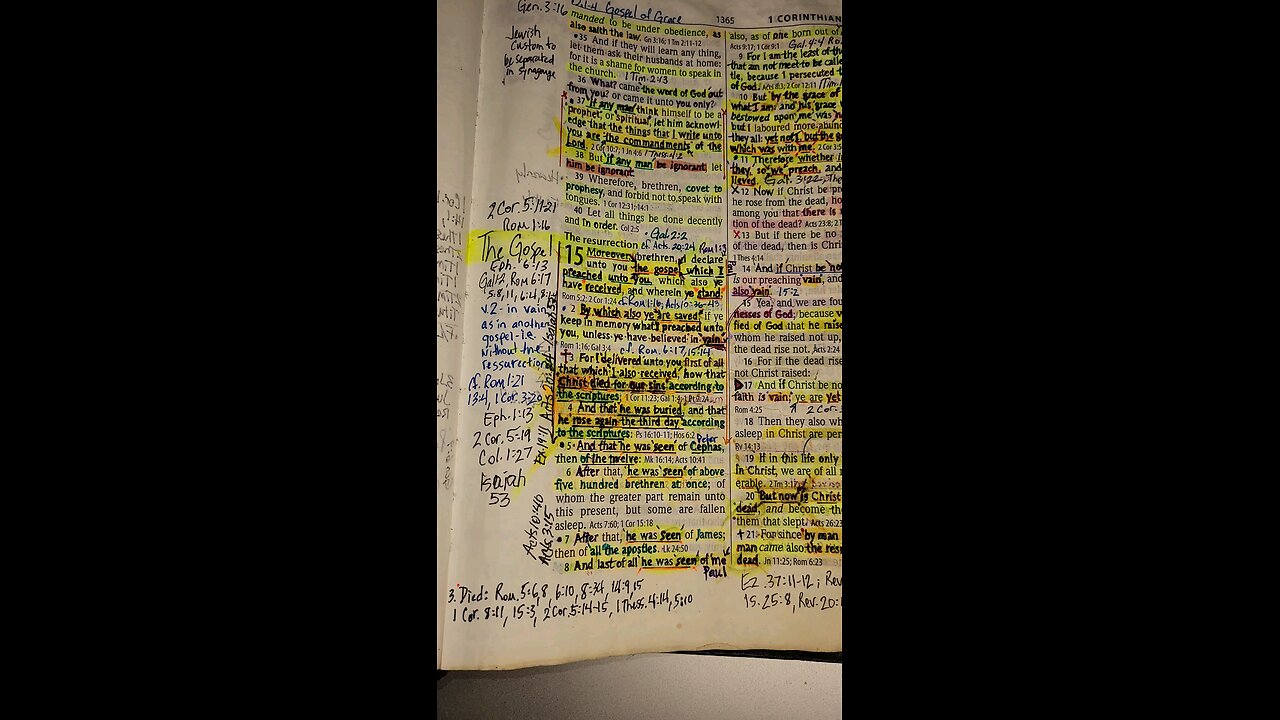 Gen. 3:16
1-4 Gospel of Grace
1365
1 CORINTHIAN
Jewish
Custom to
be separated
in synagogue
manded to be under obedience, as
also saith the law. Gn 3:16; 1 Tm 2:11-12
35 And if they will learn any thing,
let them ask their husbands at home:
for it is a shame for women to speak in
the church. 1 Tim. 2:13
36 What? came the word of God out
from you? or came it unto you only?
37 If any man think himself to be a
prophet, or spiritual, let him acknowl-
edge that the things that I write unto
you are the commandments of the
Lord. 2 Cor 10:7; 1 Jn 4:6 1 Thess. 4:2
38 But if any man be ignorant, let
him be ignorant.
39 Wherefore, brethren, covet to
prophesy, and forbid not to speak with
tongues. 1 Cor 12:31; 14:1
40 Let all things be done decently
and in order. Col 2:5
Gal. 2:2
The resurrection cf. Acts. 20:24 Rom 1:3
15 Moreover, brethren, I declare
unto you the gospel which I
preached unto you, which also ye
have received, and wherein ye stand;
Rom 5:2; 2 Cor 1:24 cf Rom 1:16, Acts 10:36-43
2 By which also ye are saved, if ye
keep in memory what I preached unto
you, unless ye have believed in vain.
Rom 1:16; Gal 3:4 cf. Rom. 6:17, 15:14
3 For I delivered unto you first of all
that which I also received, how that
Christ died for our sins according to
the scriptures; 1 Cor 11:23; Gal 1:4; 1 Pt 2:24
4 And that he was buried, and that
he rose again the third day according
to the scriptures: Ps 16:10-11; Hos 6:2
Peter
5 And that he was seen of Cephas,
then of the twelve: Mk 16:14; Acts 10:41
6 After that, he was seen of above
five hundred brethren at once; of
whom the greater part remain unto
this present, but some are fallen
asleep. Acts 7:60; 1 Cor 15:18
7 After that, he was seen of James;
then of all the apostles. Lk 24:50
8 And last of all he was seen of me
Paul
2 Cor. 5:17-21
Rom 1:16
The Gospel
Eph. 6:13
Gal:2, Rom 6:17
5:8, 11, 6:4, 8:4
v.2- in vain
as in another
gospel-i.e.
without the
ressurection
cf. Rom 1:21
13:4, 1 Cor. 3:20
Eph. 1:13
2 Cor. 5:19
Col. 1:27
Isaiah
53
Acts 10:40
3. Died: Rom. 5:6,8, 6:10, 8:34, 14:9,15
1 Cor. 8:11, 15:3, 2 Cor. 5:14-15, 1 Thess. 4:14, 5:10
also, as of one born out of
Acts 9:17; 1 Cor 9:1 Gal. 4:4
9 For I am the least of th
that am not meet to be calle
tle, because I persecuted t
of God. Acts 8:3; 2 Cor 12:11
10 But by the grace of
what I am: and his grace
bestowed upon me was n
but I laboured more abun
they all: yet not I, but the g
which was with me. 2 Cor 3:5
11 Therefore whether i
they, so we preach, and
lieved. Gal. 3:22
12 Now if Christ be pr
he rose from the dead, ho
among you that there is
tion of the dead? Acts 23:8; 2
13 But if there be no
of the dead, then is Chri
1 Thes 4:14
14 And if Christ be no
is our preaching vain, and
also vain. 15:2
15 Yea, and we are fou
nesses of God; because v
fied of God that he raise
whom he raised not up,
the dead rise not. Acts 2:24
16 For if the dead rise
not Christ raised:
17 And if Christ be no
faith is vain; ye are yet
Rom 4:25 2 Cor.
18 Then they also wh
asleep in Christ are per
Rv 14:13
19 If in this life only
in Christ, we are of all
erable. 2 Tm 3:12
20 But now is Christ
dead, and become the
them that slept. Acts 26:23
21 For since by man
man came also the res
dead. Jn 11:25; Rom 6:23
Ez. 37:11-12; Rev
IS. 25:8, Rev. 20:1